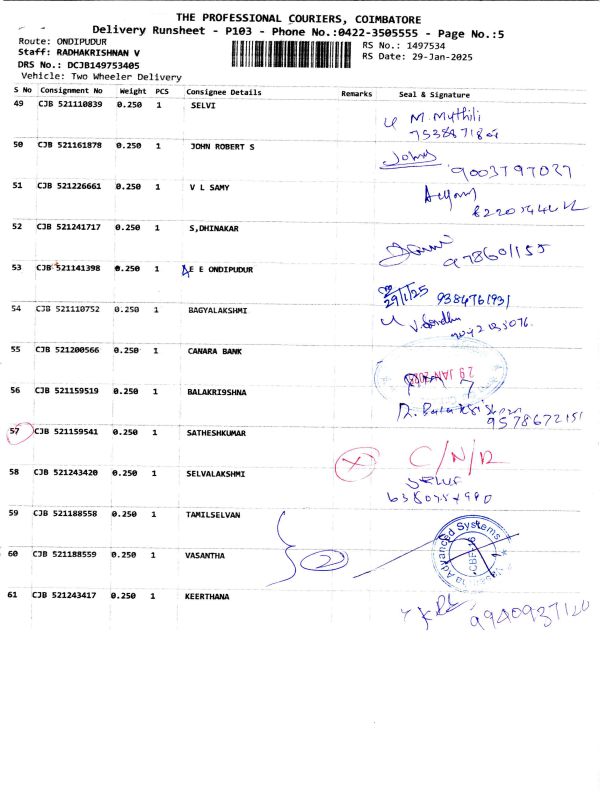 THE PROFESSIONAL COURIERS, COIMBATORE
Delivery Runsheet - P103 - Phone No.:0422-3505555 - Page No.:5
Route: ONDIPUDUR RS No.: 1497534
Staff: RADHAKRISHNAN V RS Date: 29-Jan-2025
DRS No.: DCJB149753405
Vehicle: Two Wheeler Delivery
S No Consignment No Weight PCS Consignee Details Remarks Seal & Signature
49 CJB 521110839 0.250 1 SELVI
M. Muthili
50 CJB 521161878 0.250 1 JOHN ROBERT S
John
9003797027
51 CJB 521226661 0.250 1 V L SAMY
52 CJB 521241717 0.250 1 S,DHINAKAR
978601155
53 CJB 521141398 0.250 1 E E ONDIPUDUR
29/1/25 9384761931
54 CJB 521110752 0.250 1 BAGYALAKSHMI
55 CJB 521200566 0.250 1 CANARA BANK
29 JAN
56 CJB 521159519 0.250 1 BALAKRI9SHNA
9578672151
57 CJB 521159541 0.250 1 SATHESHKUMAR
C/N/R
58 CJB 521243420 0.250 1 SELVALAKSHMI
59 CJB 521188558 0.250 1 TAMILSELVAN
2
Advanced Systems
60 CJB 521188559 0.250 1 VASANTHA
61 CJB 521243417 0.250 1 KEERTHANA
9940937120